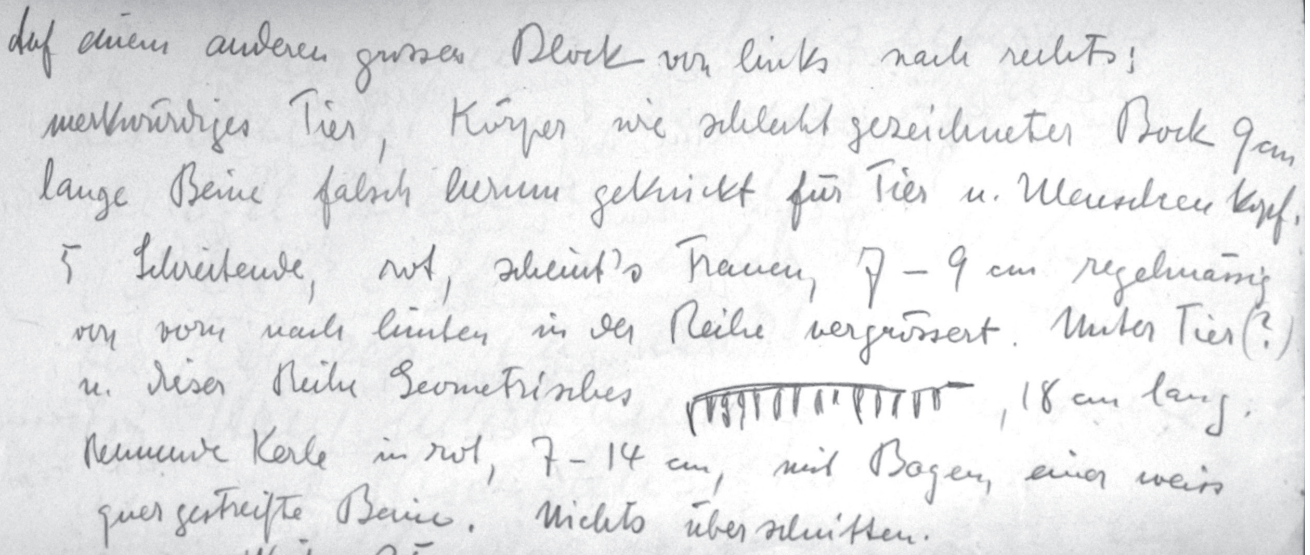 Auf einem anderen grossen Block von links nach rechts:
merkwürdiges Tier, Körper wie schlecht gezeichneter Bock 9 cm
lange Beine falsch herum geknickt für Tier u. Menschenkopf.
5 Schreitende, rot, scheint's Frauen, 7 – 9 cm regelmässig
von vorn nach hinten in der Reihe vergrössert. Unter Tier (?)
u. dieser Reihe Geometrisches , 18 cm lang.
Rennende Kerle in rot, 7 – 14 cm, mit Bogen, einer weiss
quergestreifte Beine. Nichts überschnitten.